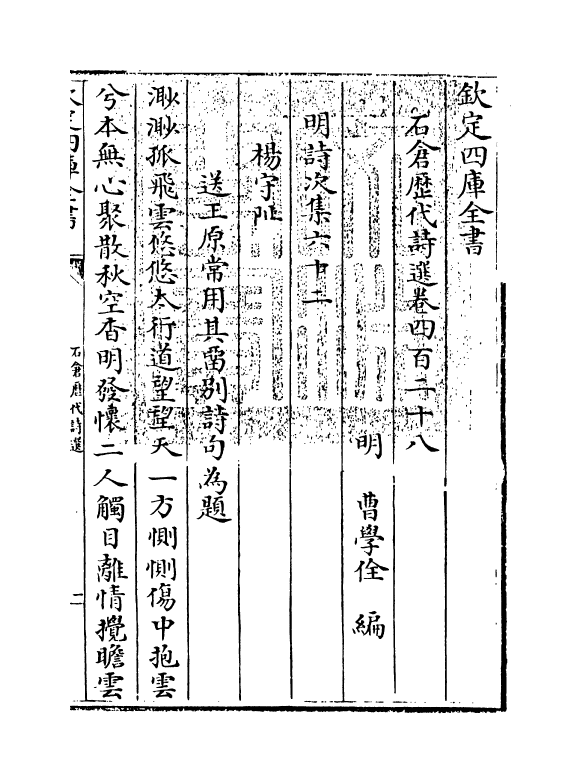 欽定四庫全書
石倉歴代詩選卷四百二十八
明　曹學佺　編
明詩次集六十二
楊守阯
送王原常用其留別詩句為題
渺渺孤飛雲悠悠太行道望望天一方惻惻傷中抱雲
兮本無心聚散秋空杳明發懷二人觸目離情攪瞻雲
欽定四庫全書
石倉歴代詩選